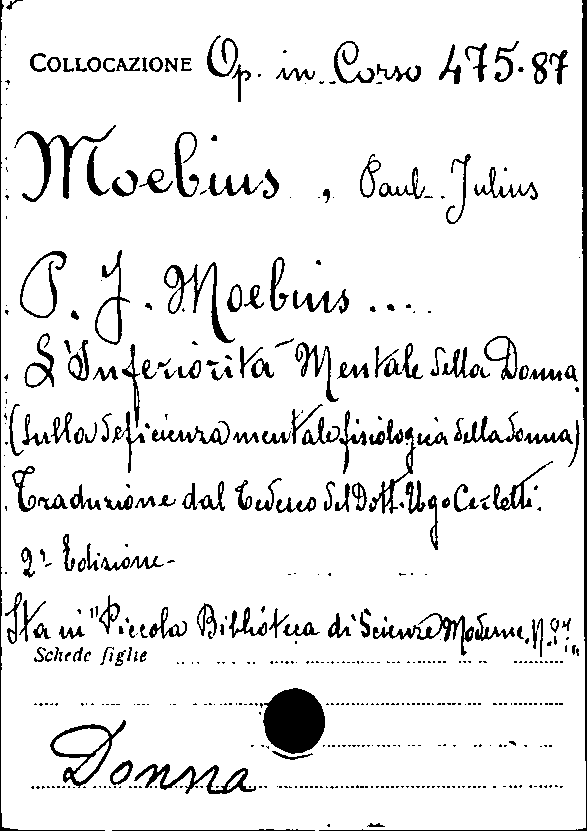 COLLOCAZIONE Op. in Corso 475.87
Moebius, Paul Julius
P. J. Moebius...
L'Inferiorità Mentale della Donna
(sulla deficienza mentale fisiologica della donna)
Traduzione dal Tedesco del Dott. Ugo Cerletti.
2ª Edizione-
Sta in "Piccola Biblioteca di Scienze Moderne. N.º
Schede figlie
Donna